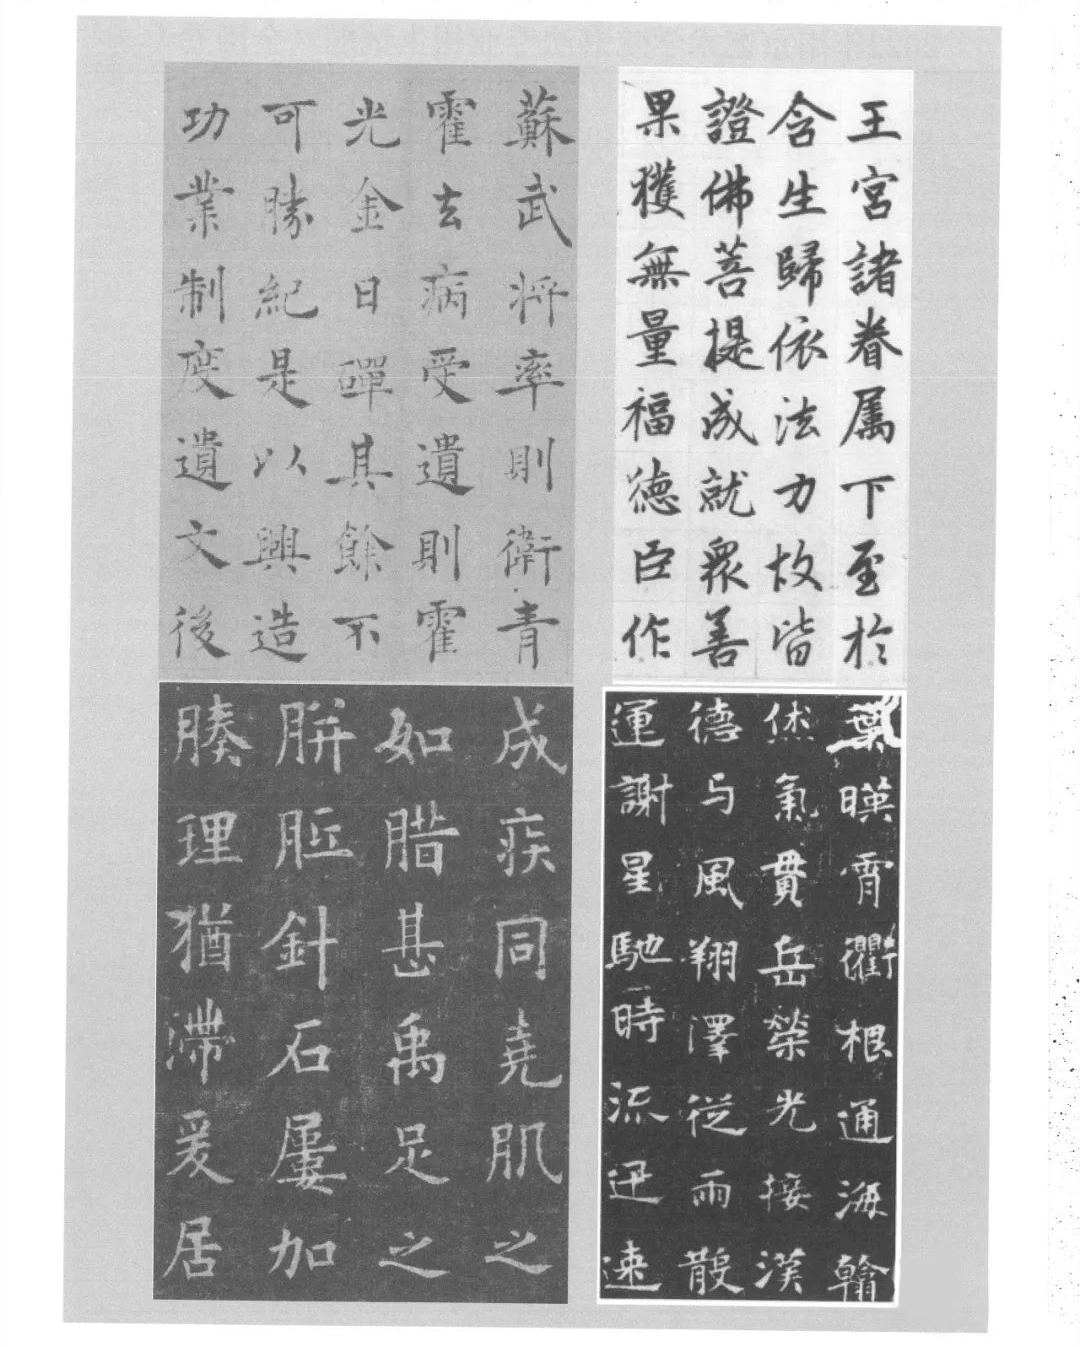 王宮諸眷属下至於
含生歸依法力故皆
證佛菩提成就衆善
果獲無量福德臣作
蘇武將率則衛青
霍去病受遺則霍
光金日磾其餘不
可勝紀是以興造
功業制度遺文後
葉暎霄衢根通海翰
烋氣貫岳榮光接漢
德与風翔澤從雨散
運謝星馳時流迅速
成疾同堯肌之
如腊甚禹足之
胼胝針石屢加
腠理猶滯爰居